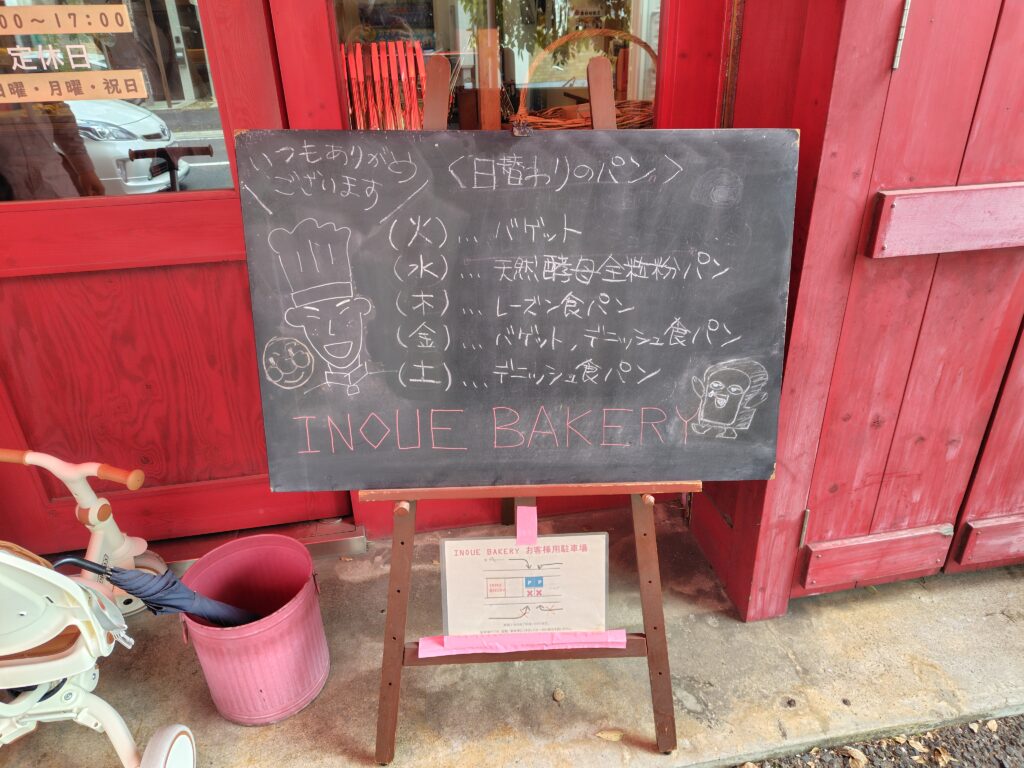 00～17:00
定休日
日曜・月曜・祝日
いつもありがとう
ございます
〈日替わりのパン〉
(火)...バゲット
(水)...天然酵母全粒粉パン
(木)...レーズン食パン
(金)...バゲット,デニッシュ食パン
(土)...デニッシュ食パン
INOUE BAKERY
INOUE BAKERY お客様用駐車場
P P